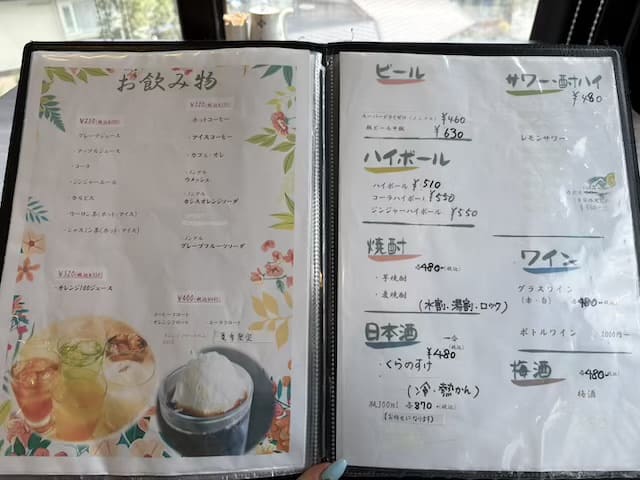 お飲み物
グレープジュース
・アップルジュース
・コーラ
・ジンジャーエール
・カルピス
・ウーロン茶(ホット・アイス)
・ジャスミン茶(ホット・アイス)
・オレンジ100ジュース
ホットコーヒー
アイスコーヒー
・カフェ・オレ
・ノンアル
ウメッシュ
・ノンアル
カシスオレンジソーダ
・ノンアル
グレープフルーツソーダ
コーヒーフロート
コーラフロート
夏季限定
ビール
¥460
¥630
ハイボール
ハイボール ¥510
コーラハイボール ¥550
ジンジャーハイボール ¥550
焼酎
480
・芋焼酎
・麦焼酎
(水割・湯割・ロック)
日本酒 一合
¥480
・くらのすけ
(冷・熱かん)
瓶300ml 870
【お持ちになります】
サワー・酎ハイ
¥480
レモンサワー
ワイン
グラスワイン
(赤・白) 480
ボトルワイン
梅酒 480
梅酒